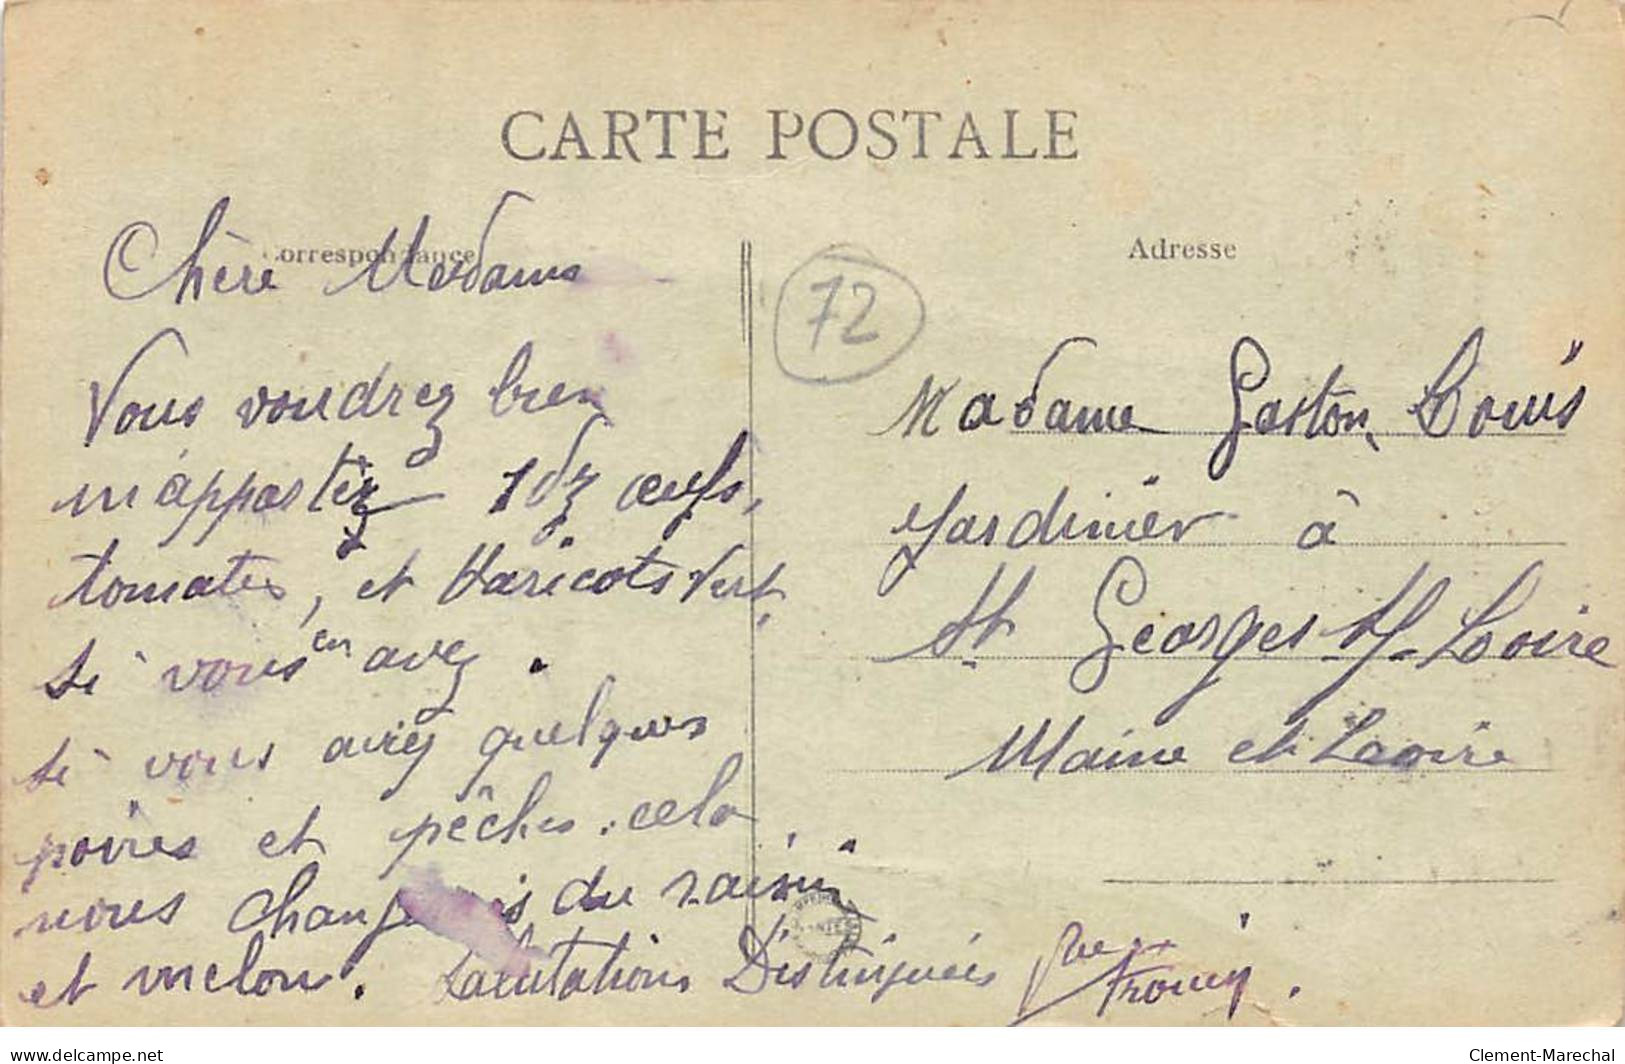 CARTE POSTALE
Correspondance
Chère Madame
Vous voudrez bien
m'apportez 1 dz œufs,
tomates, et Haricots vert.
si vous en avez.
si vous aviez quelques
poires et pêches. cela
nous du raisin
et melon. Salutations Distinguées
Adresse
72
Madame Gaston Louis
Jardinier à
St Georges s/ Loire
Maine et Loire
delcampe.net
Clement-Marechal